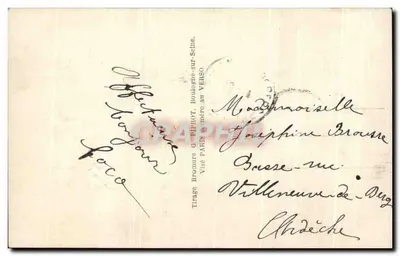 Affectueux
bonjour
Coco
Tirage Bromure G. PIPROT, Boulogne-sur-Seine.
Visé PARIS numéro au VERSO
Mademoiselle
Joséphine Brousse
Basse-rue
Villeneuve-de-Berg
Ardèche